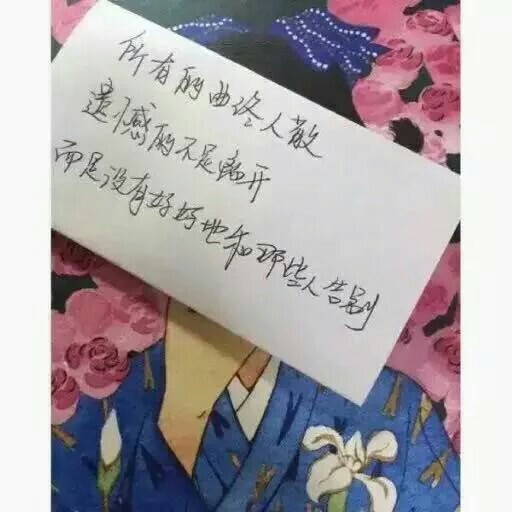 所有的曲终人散
遗憾的不是离开
而是没有好好地和那些人告别